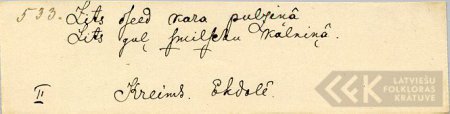 533. Zits dzeed kara pulziņâ
Zits guļ smilkšu kalniņâ.
II Kreims. Ekdolē.
LATVIEŠU
FOLKLORAS
KRĀTUVE